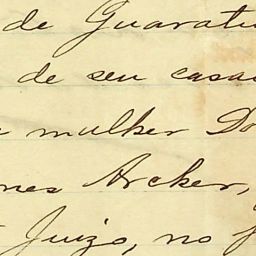 de Guaratu
de seu casa
mulher Do
nes Archer,
Juizo, no